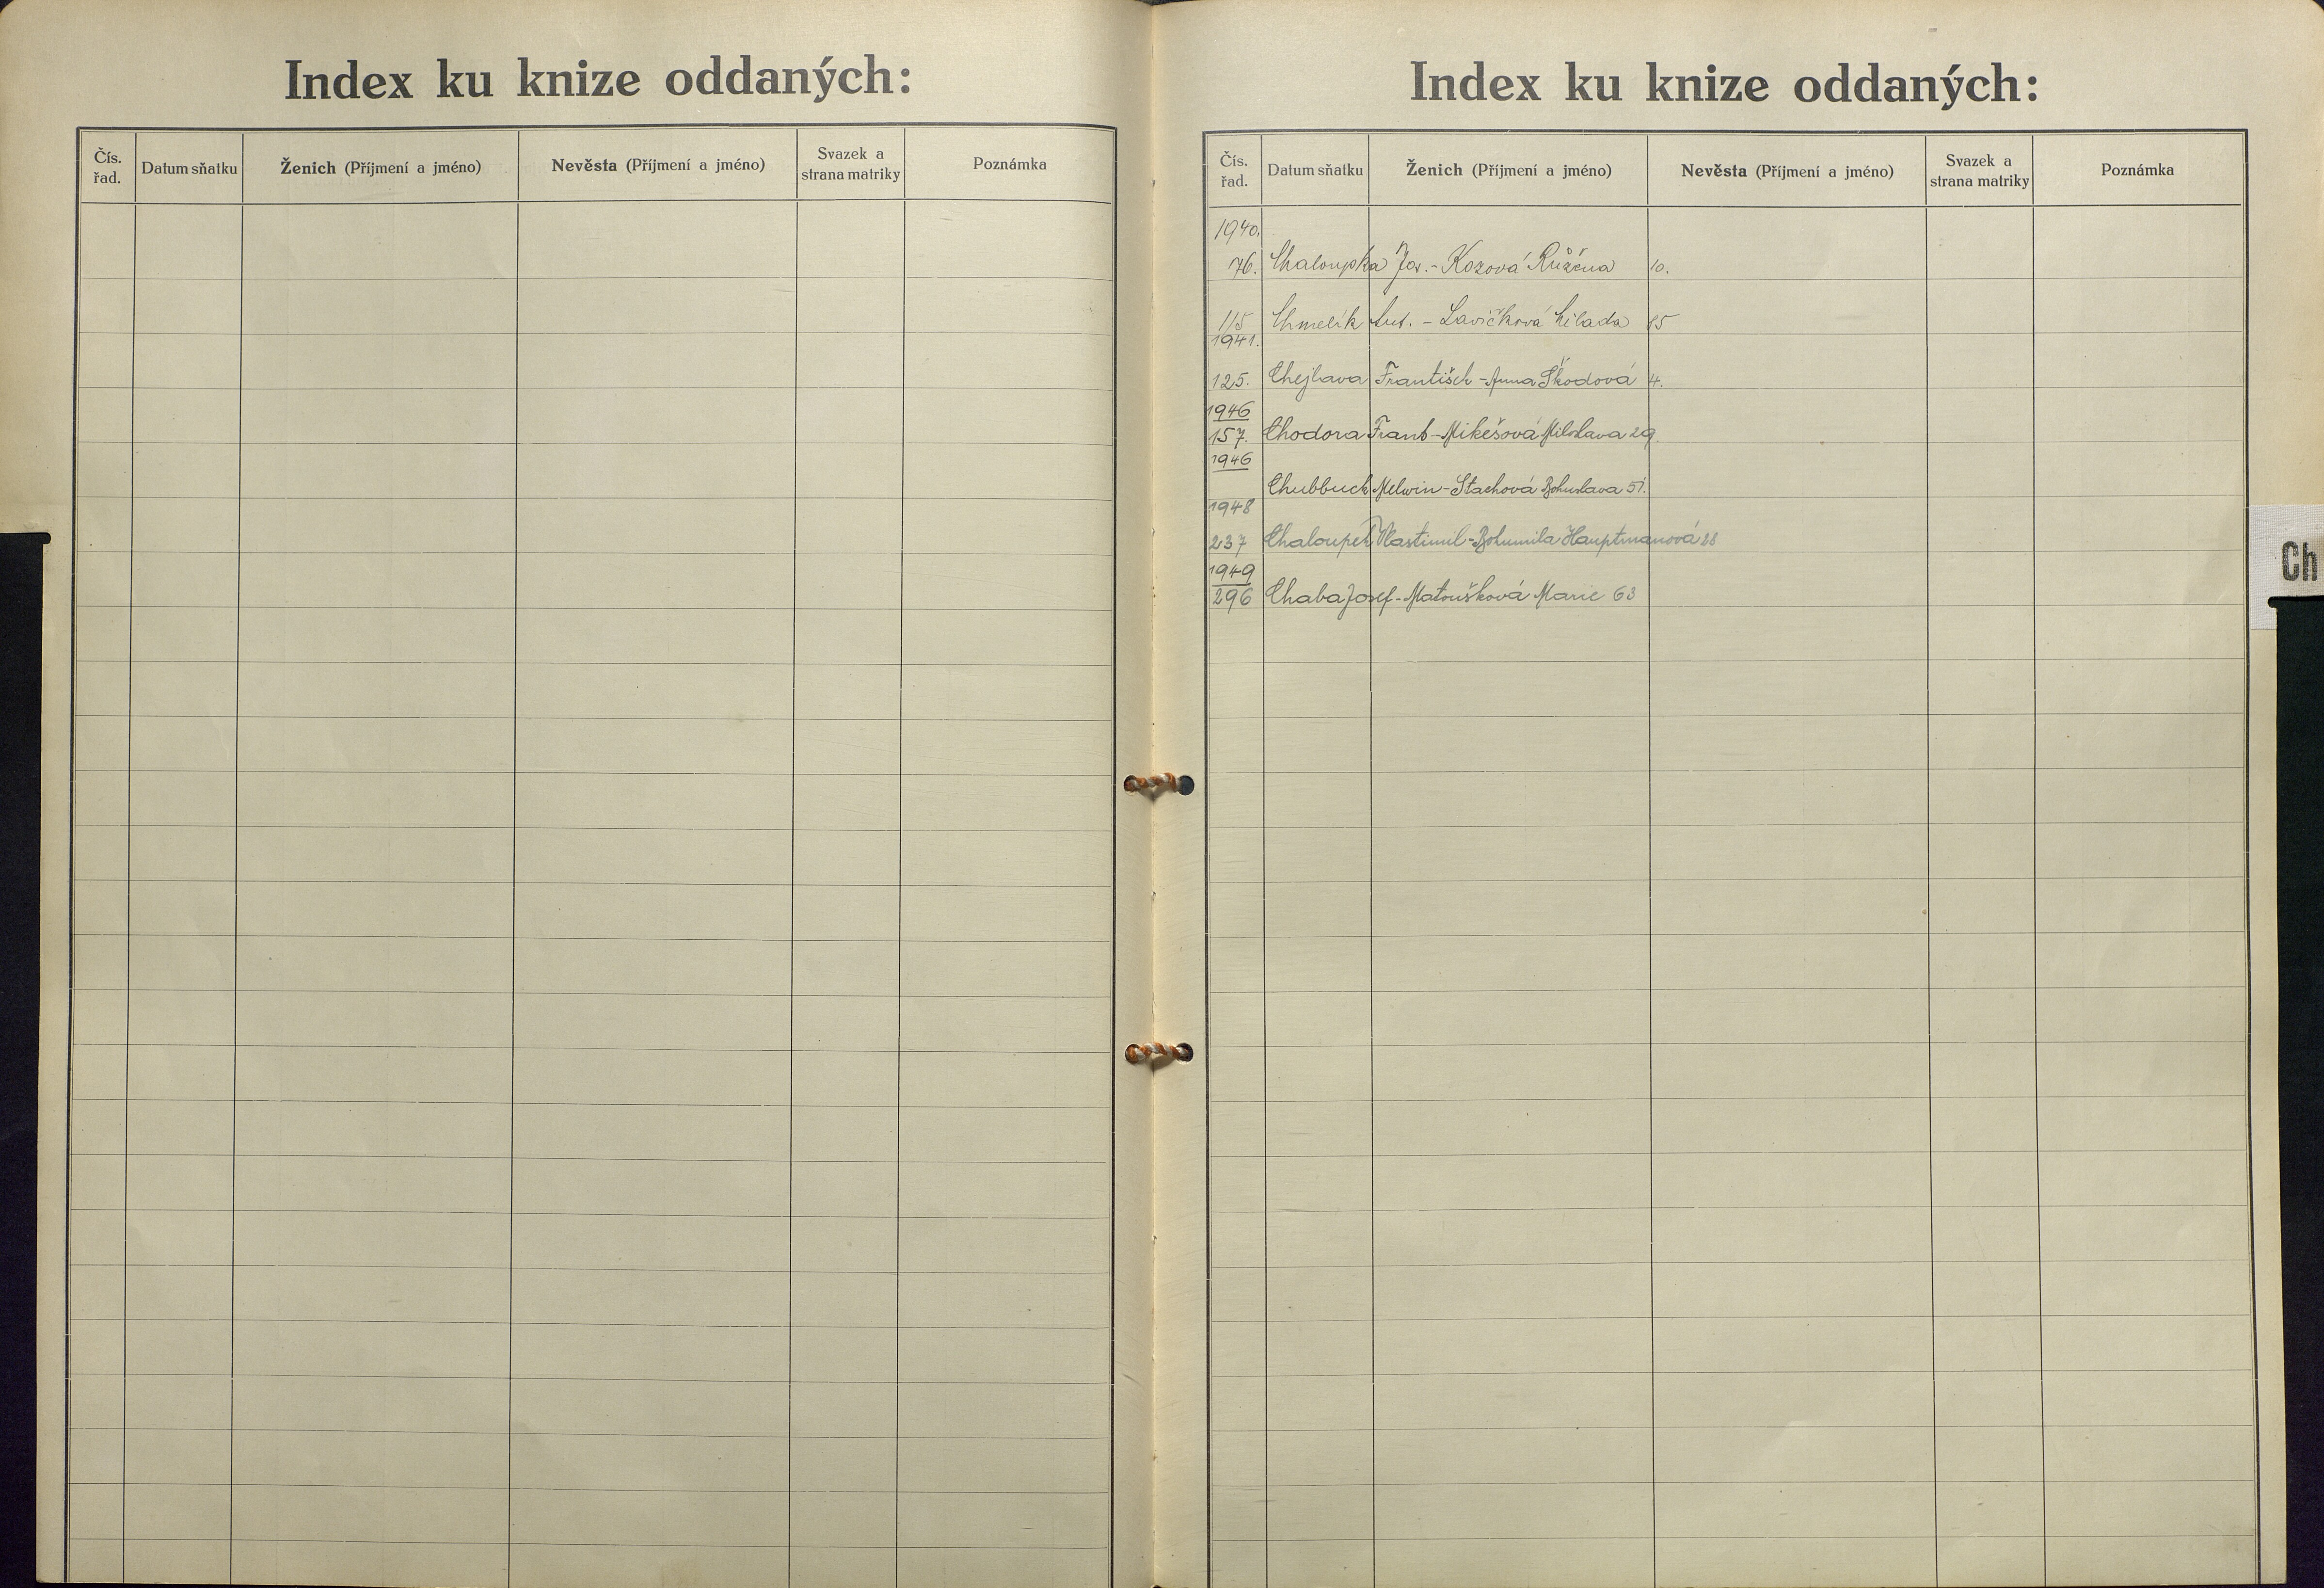 Index ku knize oddaných:
Čís. řad.
Datum sňatku
Ženich (Příjmení a jméno)
Nevěsta (Příjmení a jméno)
Svazek a strana matriky
Poznámka
Index ku knize oddaných:
Čís. řad.
Datum sňatku
Ženich (Příjmení a jméno)
Nevěsta (Příjmení a jméno)
Svazek a strana matriky
Poznámka
1940.
76. Chaloupka Jos. - Kozová Růžena 10.
115 Chmelík Ant. - Lavičková
1941.
125. Chejlava František - Anna Škodová 4.
1946
157. Chodora Frant - Mikešová Miloslava 29.
1946
Chubbuck Melwin - Stachová Bohuslava 51.
1948
237 Vlastimil - Bohumila Hauptmanová 28
1949
296 Chaba Josef - Matoušková Marie 63
Ch